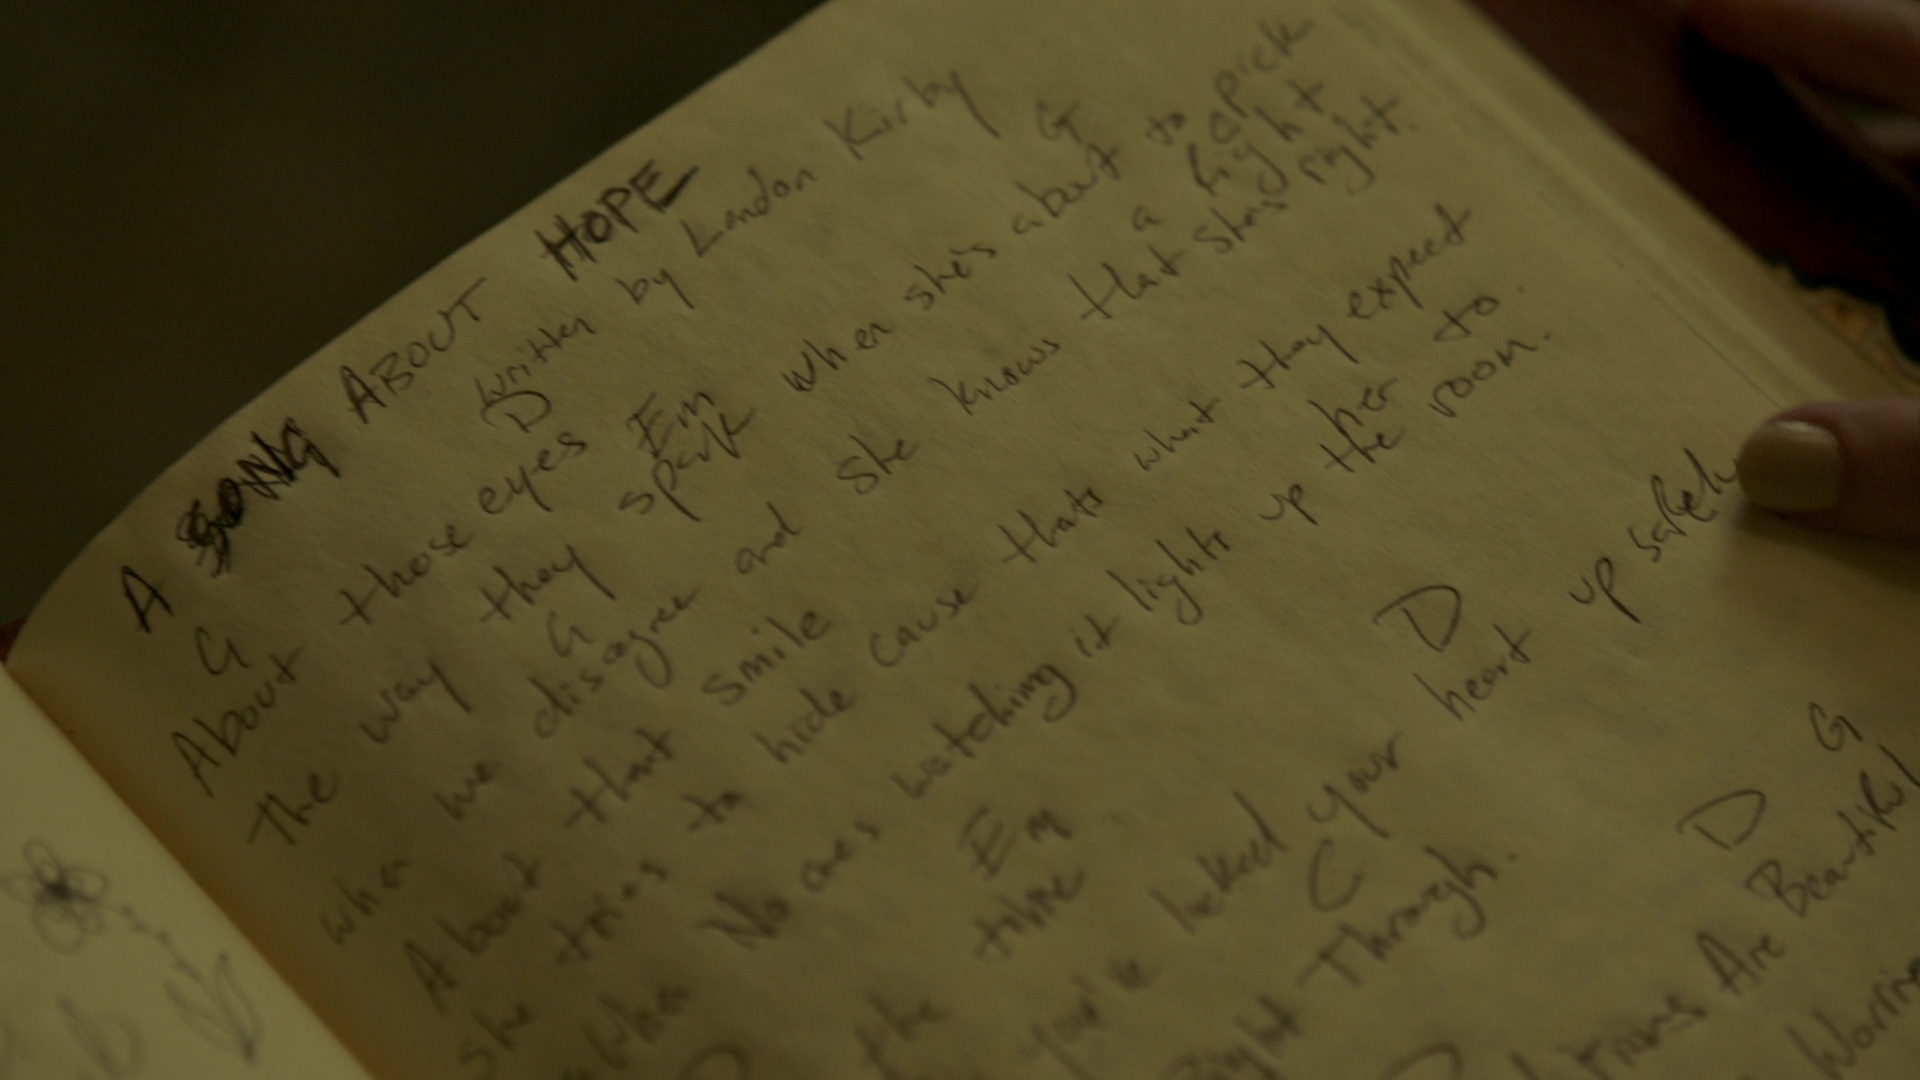 A SONG ABOUT HOPE
written by London Kirby
G D Em G
About those eyes when she's about to pick
The way they spark a fight
G
when we disagree and she knows that shes right.
About that smile
she tries to hide cause thats what they expect her to.
when No ones watching it lights up the room.
Em D
the time
you've locked your heart up safely
C
Right Through.
D G
Are Beautiful